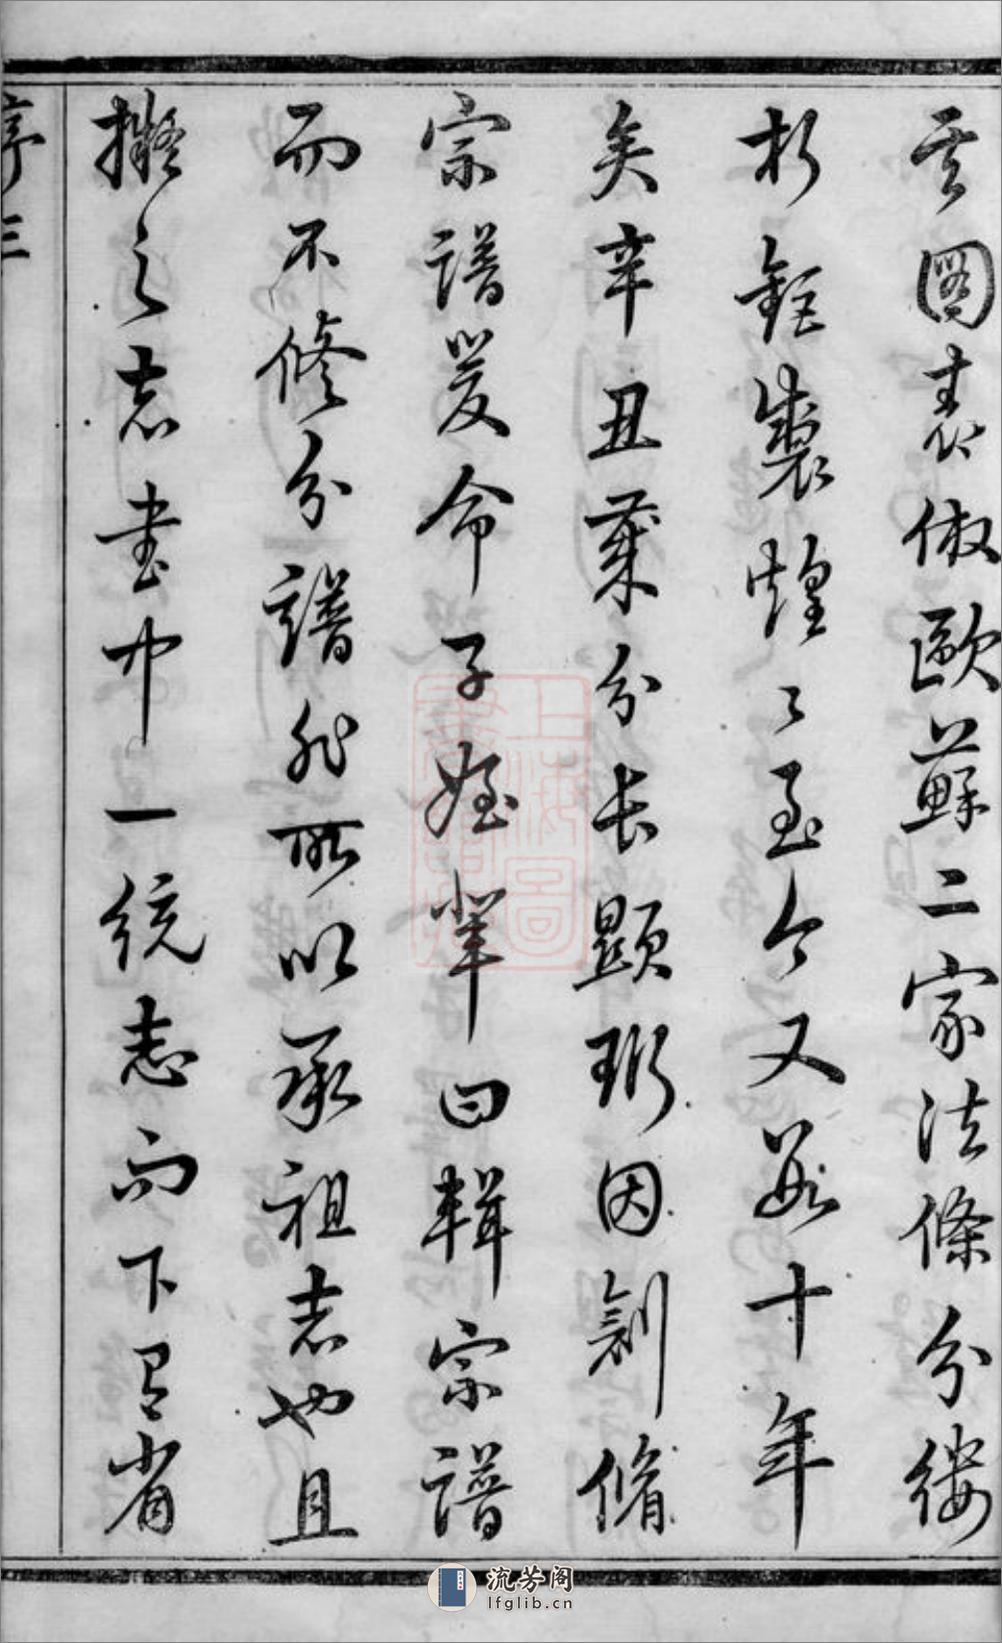 其圖表倣歐蘇二家法條分縷
析鉅製煌〻至今又數十年
矣辛丑葉分長顯珩因剏脩
宗譜爰命子姪輩曰輯宗譜
而不修分譜非所以承祖志也且
擬之志書中一統志而下有省
序三
上海圖書館藏
流芳阁
lfglib.cn